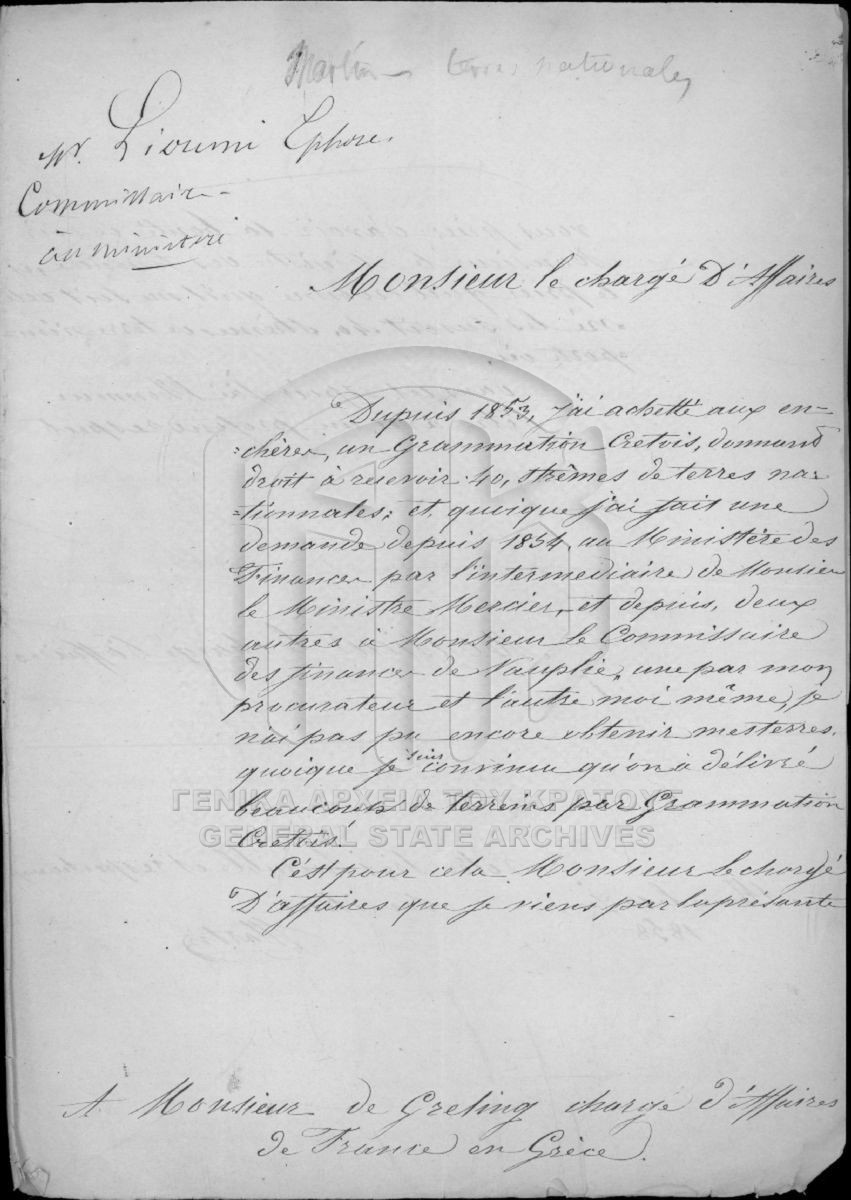 Martin terres nationales
Mr. Lioumi Ephore.
Commissaire
au ministere
Monsieur le chargé D'Affaires
Dupuis 1853, j'ai achetté aux en=
=chères, un Grammation Cretois, donnand
droit à resevoir 40, strêmes de terres na=
=tionnales; et quoique j'ai fait une
demande depuis 1854, au Ministère des
Finances par l'intermediaire de Monsieur
le Ministre Mercier, et depuis, deux
autres à Monsieur le Commissaire
des finances de Nauplie, une par mon
procurateur et l'autre moi même, je
n'ai pas pu encore obtenir mes terres.
quoique je suis convincu qu'on a délivré
beaucoup de terreins par Grammation
Cretois.
C'est pour cela Monsieur le chargé
D'affaires que je viens par la présante
A Monsieur de Greling chargé d'Affaires
de France en Grèce.
ΓΕΝΙΚΑ ΑΡΧΕΙΑ ΤΟΥ ΚΡΑΤΟΥΣ
GENERAL STATE ARCHIVES